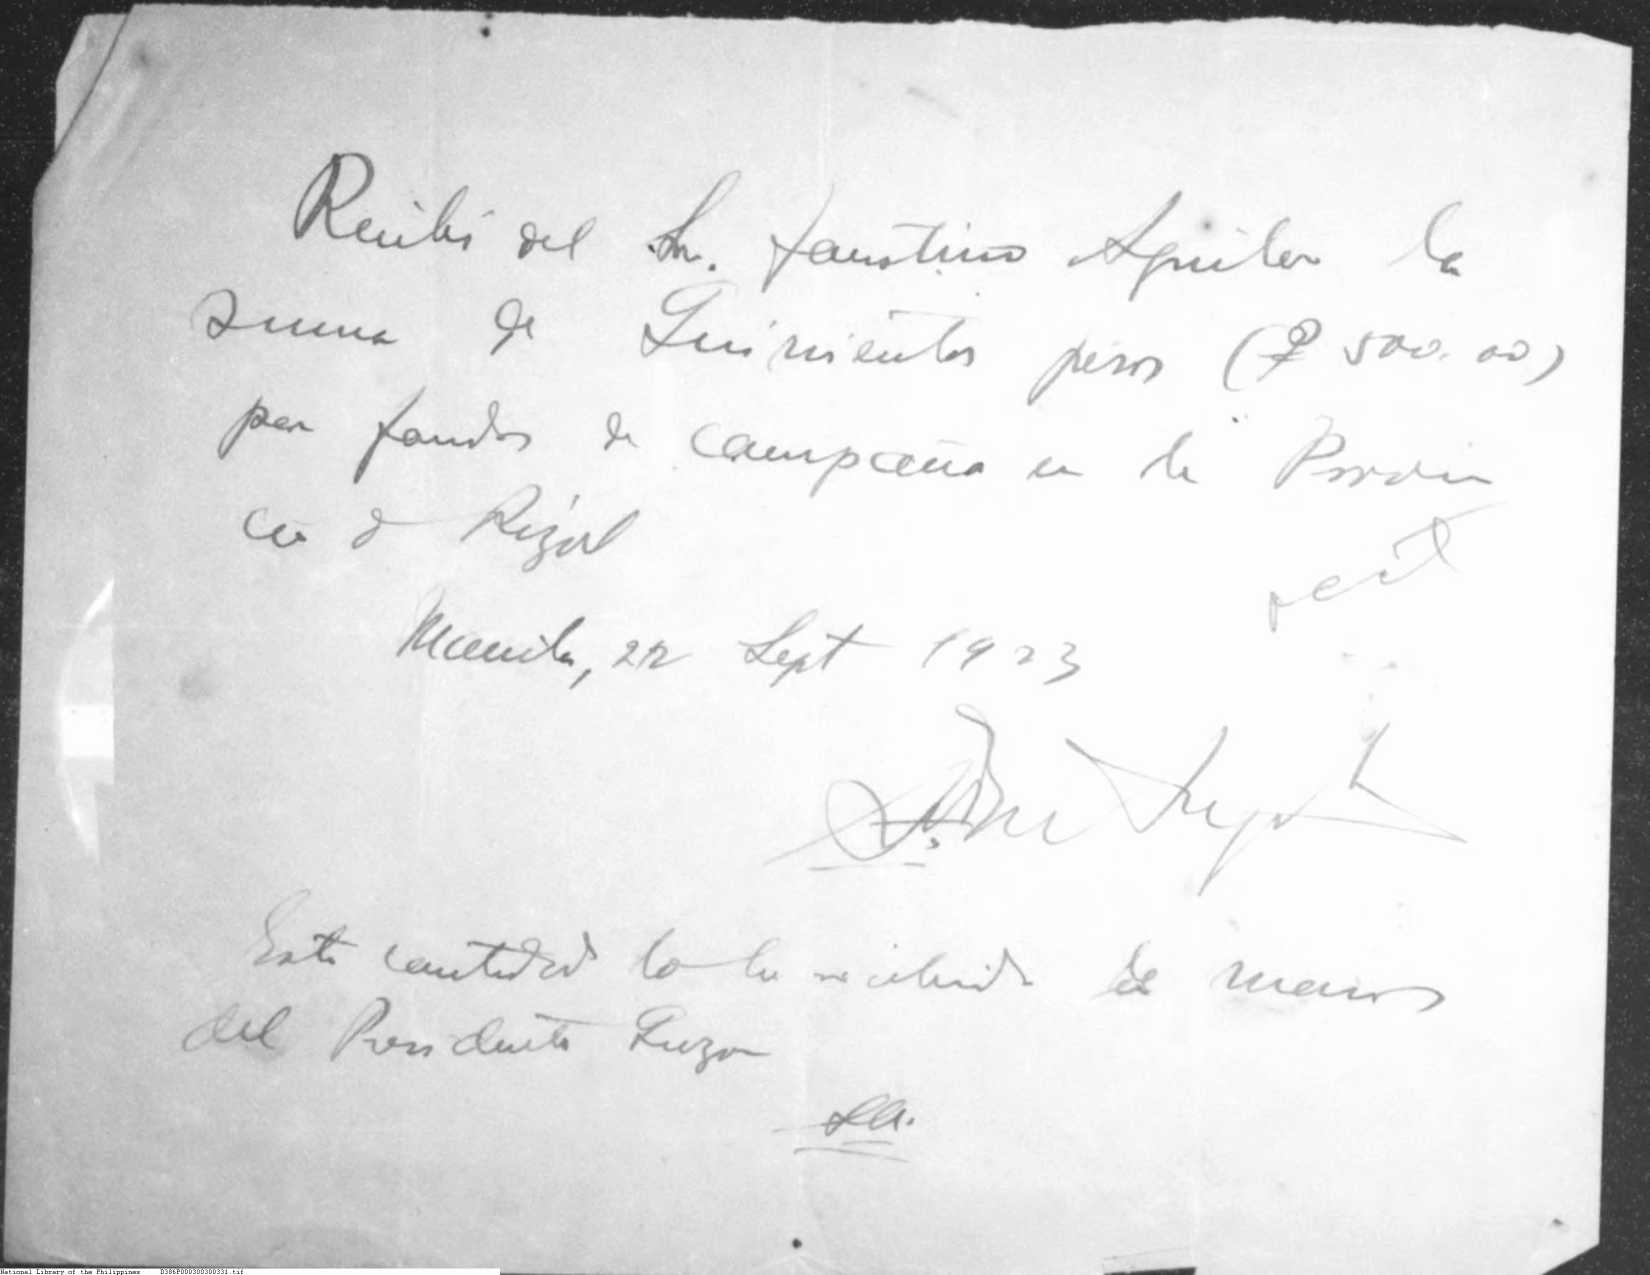 Recibí del Sr. Faustino Aguilar la
suma de Quinientos pesos (₱ 500.00)
por fondos de campaña en la Provin
cia de Rizal
Manila, 22 Sept 1923
Esta cantidad la he recibido de manos
del Presidente Quezon
National Library of the Philippines D386P000300300331.tif